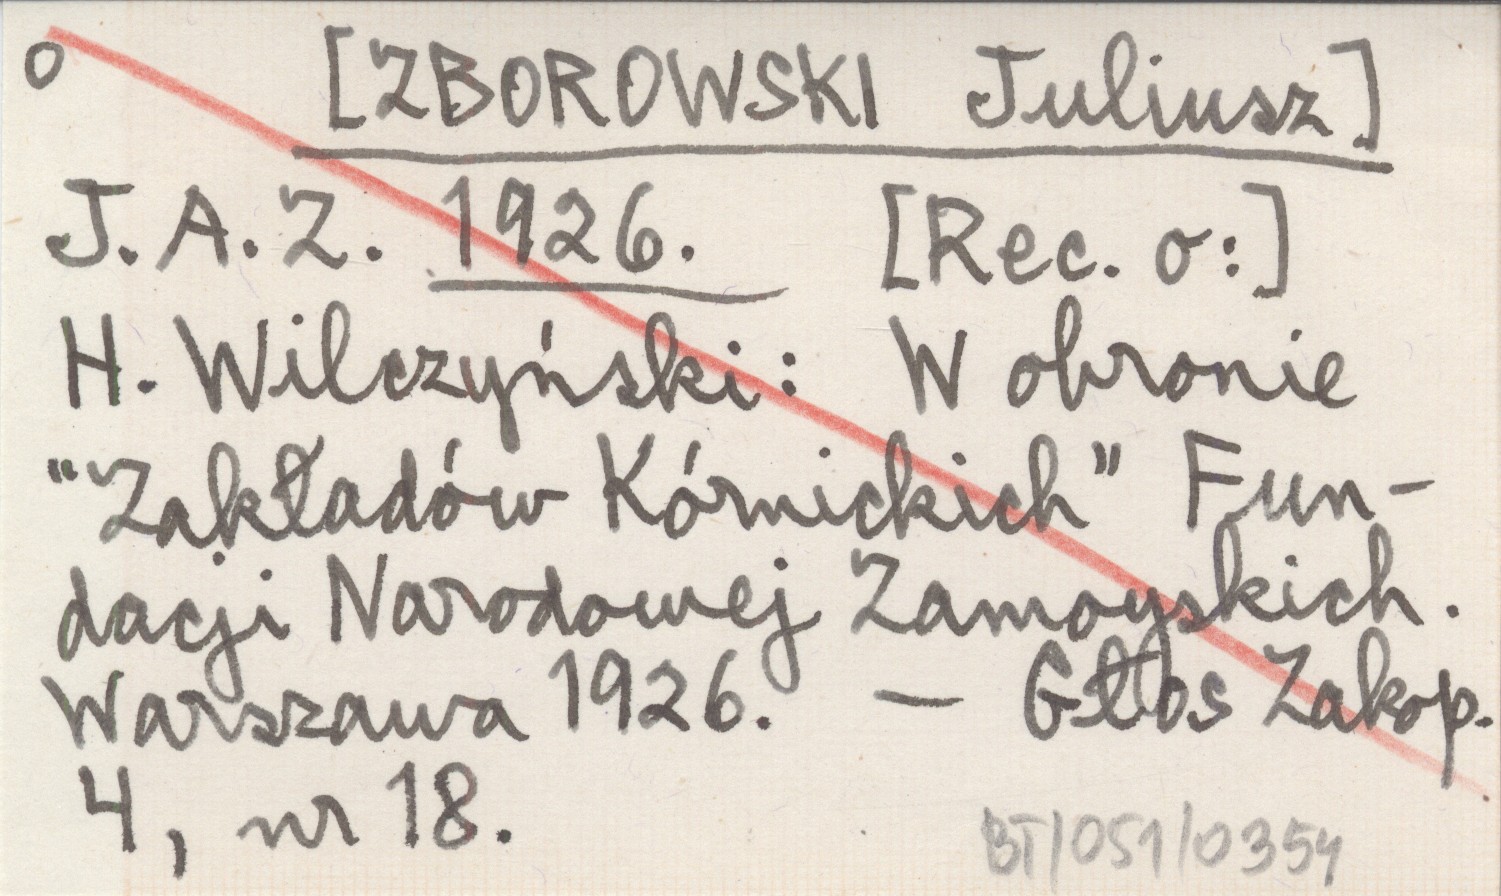 o [ZBOROWSKI Juliusz]
J. A. Z. 1926. [Rec. o:]
H. Wilczyński: W obronie
"Zakładów Kórnickich" Fun-
dacji Narodowej Zamoyskich.
Warszawa 1926. — Głos Zakop.
4, nr 18.
BT/051/0354